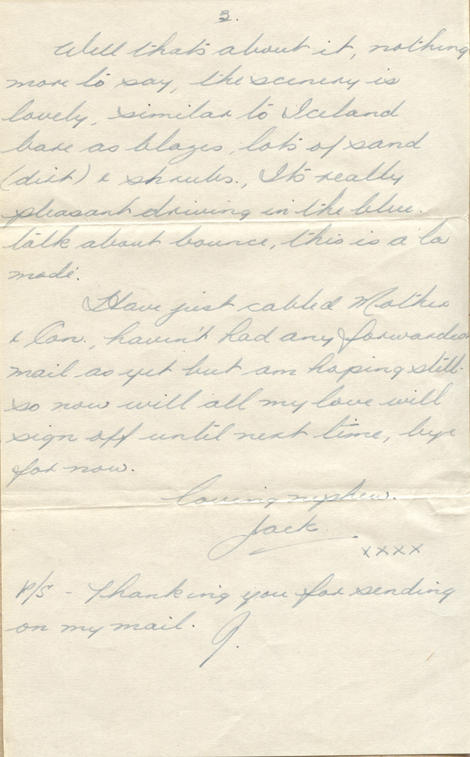 3.
Well thats about it, nothing
more to say, the scenery is
lovely, similar to Iceland
bare as blazes, lots of sand
(dirt) & shrubs., It's really
pleasant driving in the blue.
talk about bounce, this is a la
mode.
Have just cabled Mother
& Con., haven't had any forwarded
mail as yet but am hoping still.
so now will all my love will
sign off until next time, bye
for now.
loving nephew.
Jack
xxxx
P/S - Thanking you for sending
on my mail. J.